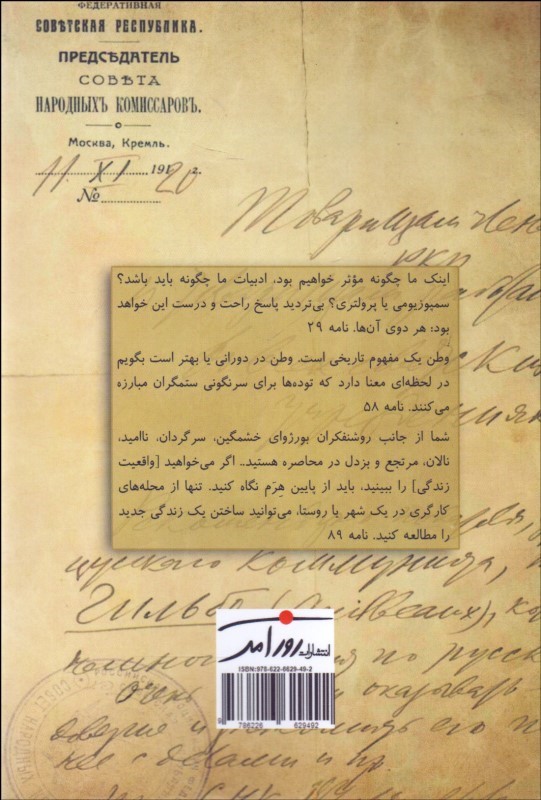 ФЕДЕРАТИВНАЯ
СОВѢТСКАЯ РЕСПУБЛИКА.
ПРЕДСѢДАТЕЛЬ
СОВѢТА
НАРОДНЫХЪ КОМИССАРОВЪ.
Москва, Кремль.
11. XI 1920 г.
№
Товарищам
РКП
اینک ما چگونه مؤثر خواهیم بود، ادبیات ما چگونه باید باشد؟
سمپوزیومی یا پرولتری؟ بی‌تردید پاسخ راحت و درست این خواهد
بود: هر دوی آن‌ها. نامه ۲۹
وطن یک مفهوم تاریخی است. وطن در دورانی یا بهتر است بگویم
در لحظه‌ای معنا دارد که توده‌ها برای سرنگونی ستمگران مبارزه
می‌کنند. نامه ۵۸
شما از جانب روشنفکران بورژوای خشمگین، سرگردان، ناامید،
نالان، مرتجع و بزدل در محاصره هستید.. اگر می‌خواهید [واقعیت
زندگی] را ببینید، باید از پایین هِرَم نگاه کنید. تنها از محله‌های
کارگری در یک شهر یا روستا، می‌توانید ساختن یک زندگی جدید
را مطالعه کنید. نامه ۸۹
коммуниста,
Гильбо
по русск
очень оказывать
доверие и его
и пр.
انتشارات روزآمد
ISBN: 978-622-6629-49-2
9 786226 629492